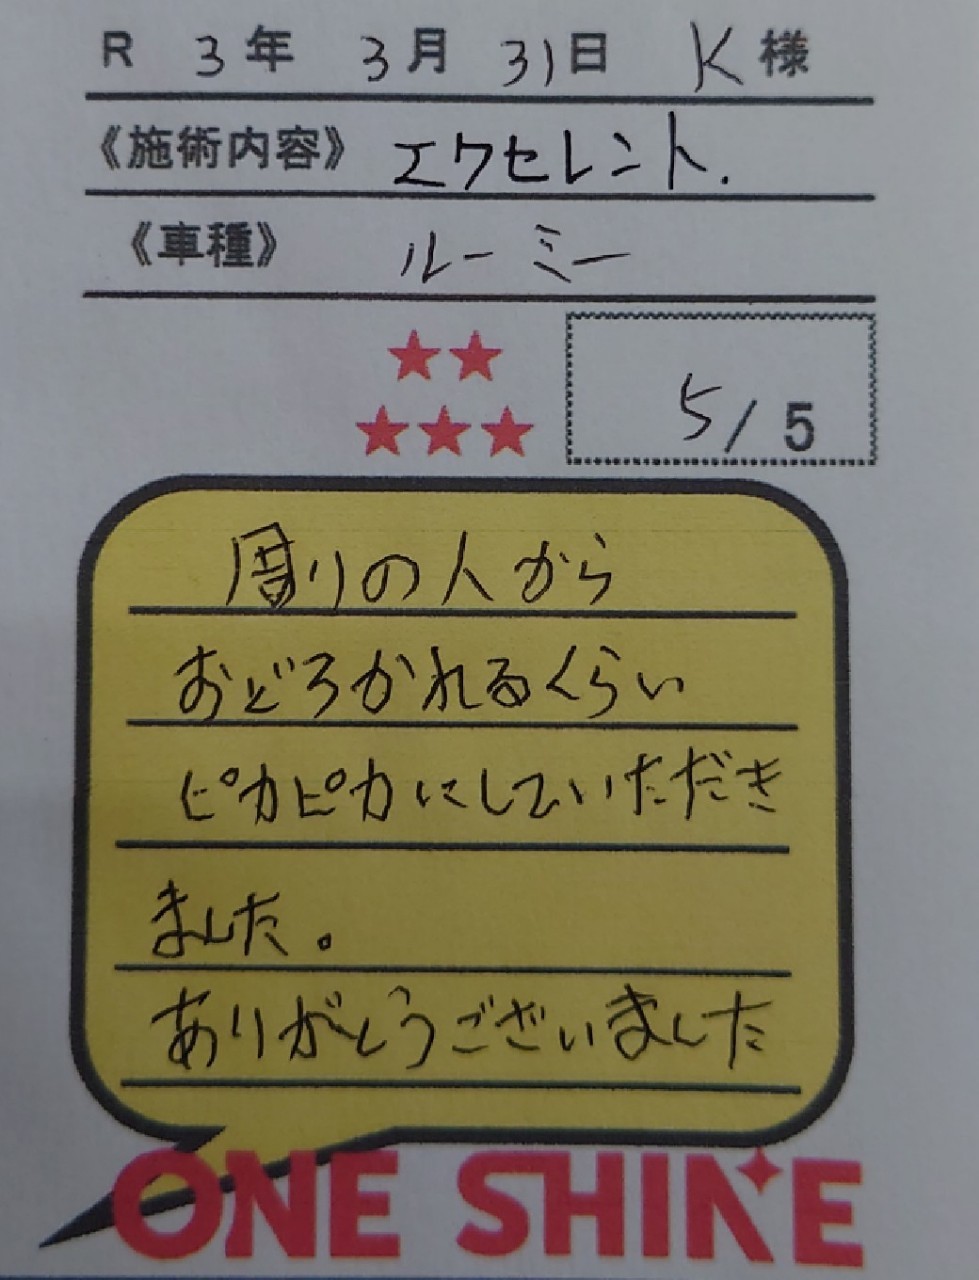 R 3年 3月 31日 K様
《施術内容》 エクセレント.
《車種》 ルーミー
5/5
周りの人から
おどろかれるくらい
ピカピカにしていただき
ました。
ありがとうございました
ONE SHINE